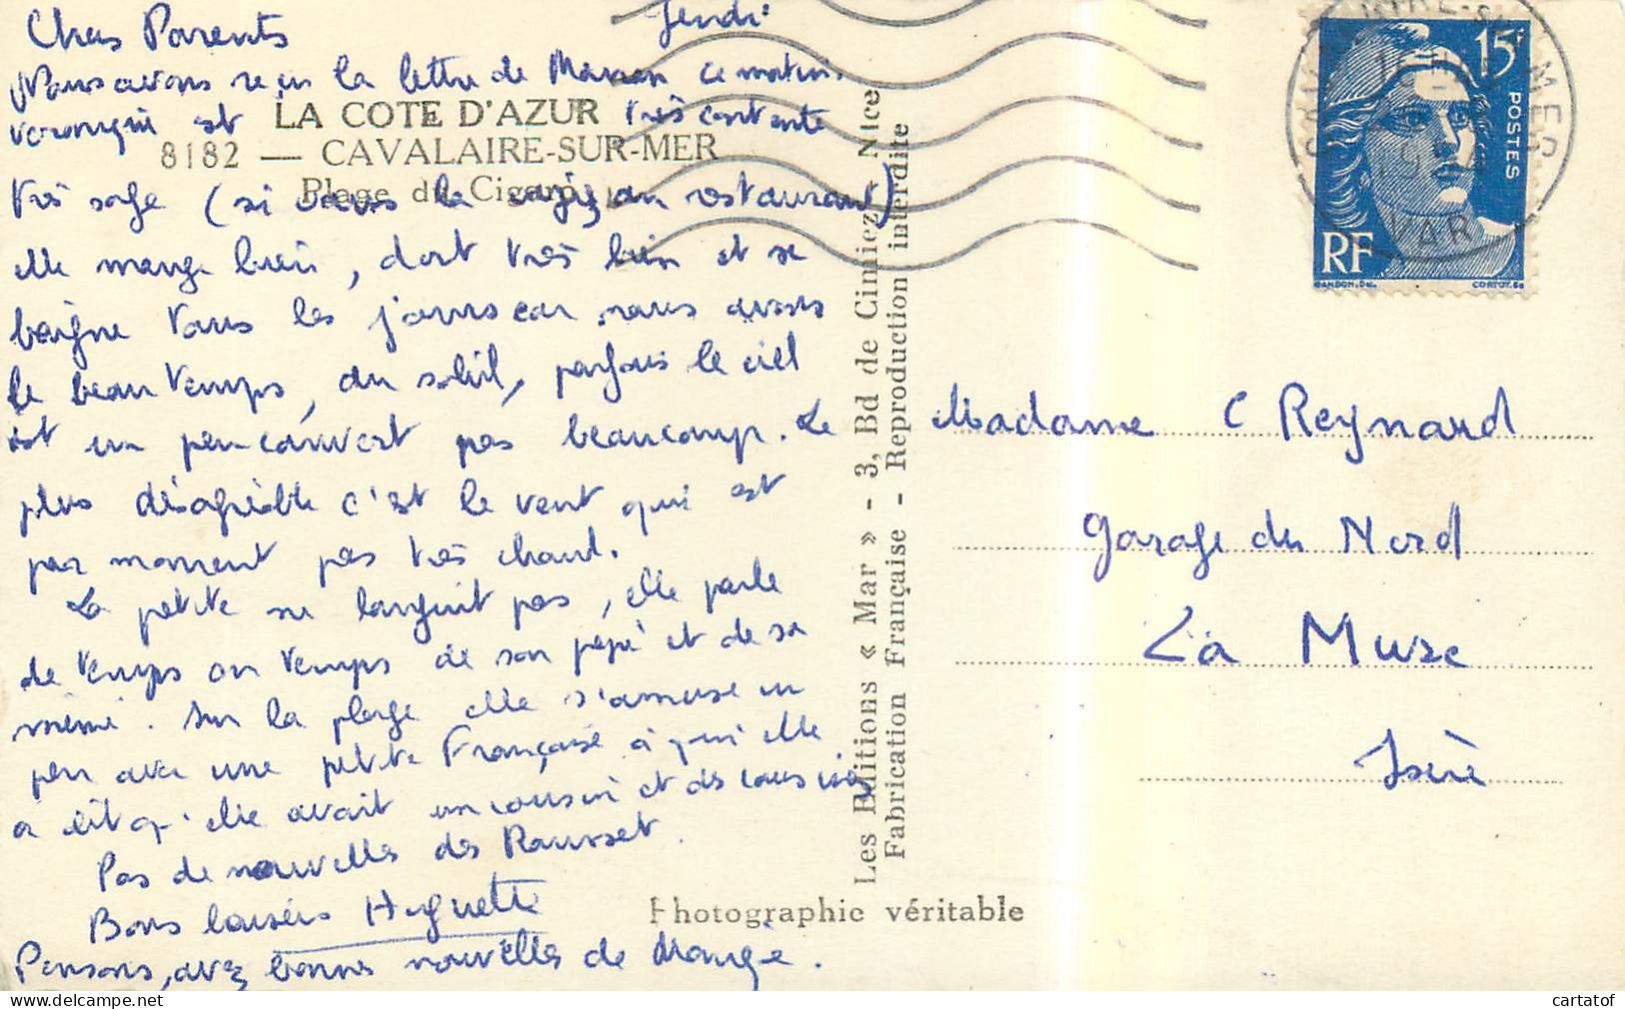 Chers Parents
Jeudi
Nous avons reçu la lettre de Manon ce matin.
LA COTE D'AZUR
est très contente
8182 — CAVALAIRE-SUR-MER
Plage du Cigaro
très sage (si vous la voyiez au restaurant)
elle mange bien, dort très bien et se
baigne tous les jours car nous avons
le beau temps, du soleil, parfois le ciel
est un peu couvert pas beaucoup. Le
plus désagréable c'est le vent qui est
par moment pas très chaud.
La petite ne languit pas, elle parle
de temps en temps de son pépé et de sa
mémé. Sur la plage elle s'amuse un
peu avec une petite Française à qui elle
a dit qu'elle avait un cousin et des cousines
Pas de nouvelles des Rousset.
Bons baisers Huguette
Pensons, avez bonnes nouvelles de
Les Editions « Mar » - 3, Bd de Cimiez - Nice
Fabrication Française - Reproduction interdite
Photographie véritable
15F
POSTES
RF
GANDON.DEL.
CORTOT.SC
VAR
Madame C Reynard
Garage du Nord
La Mure
Isère
cartatof